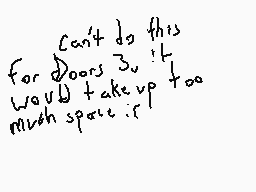 can't do this
for doors 3, it
would take up too
much space if